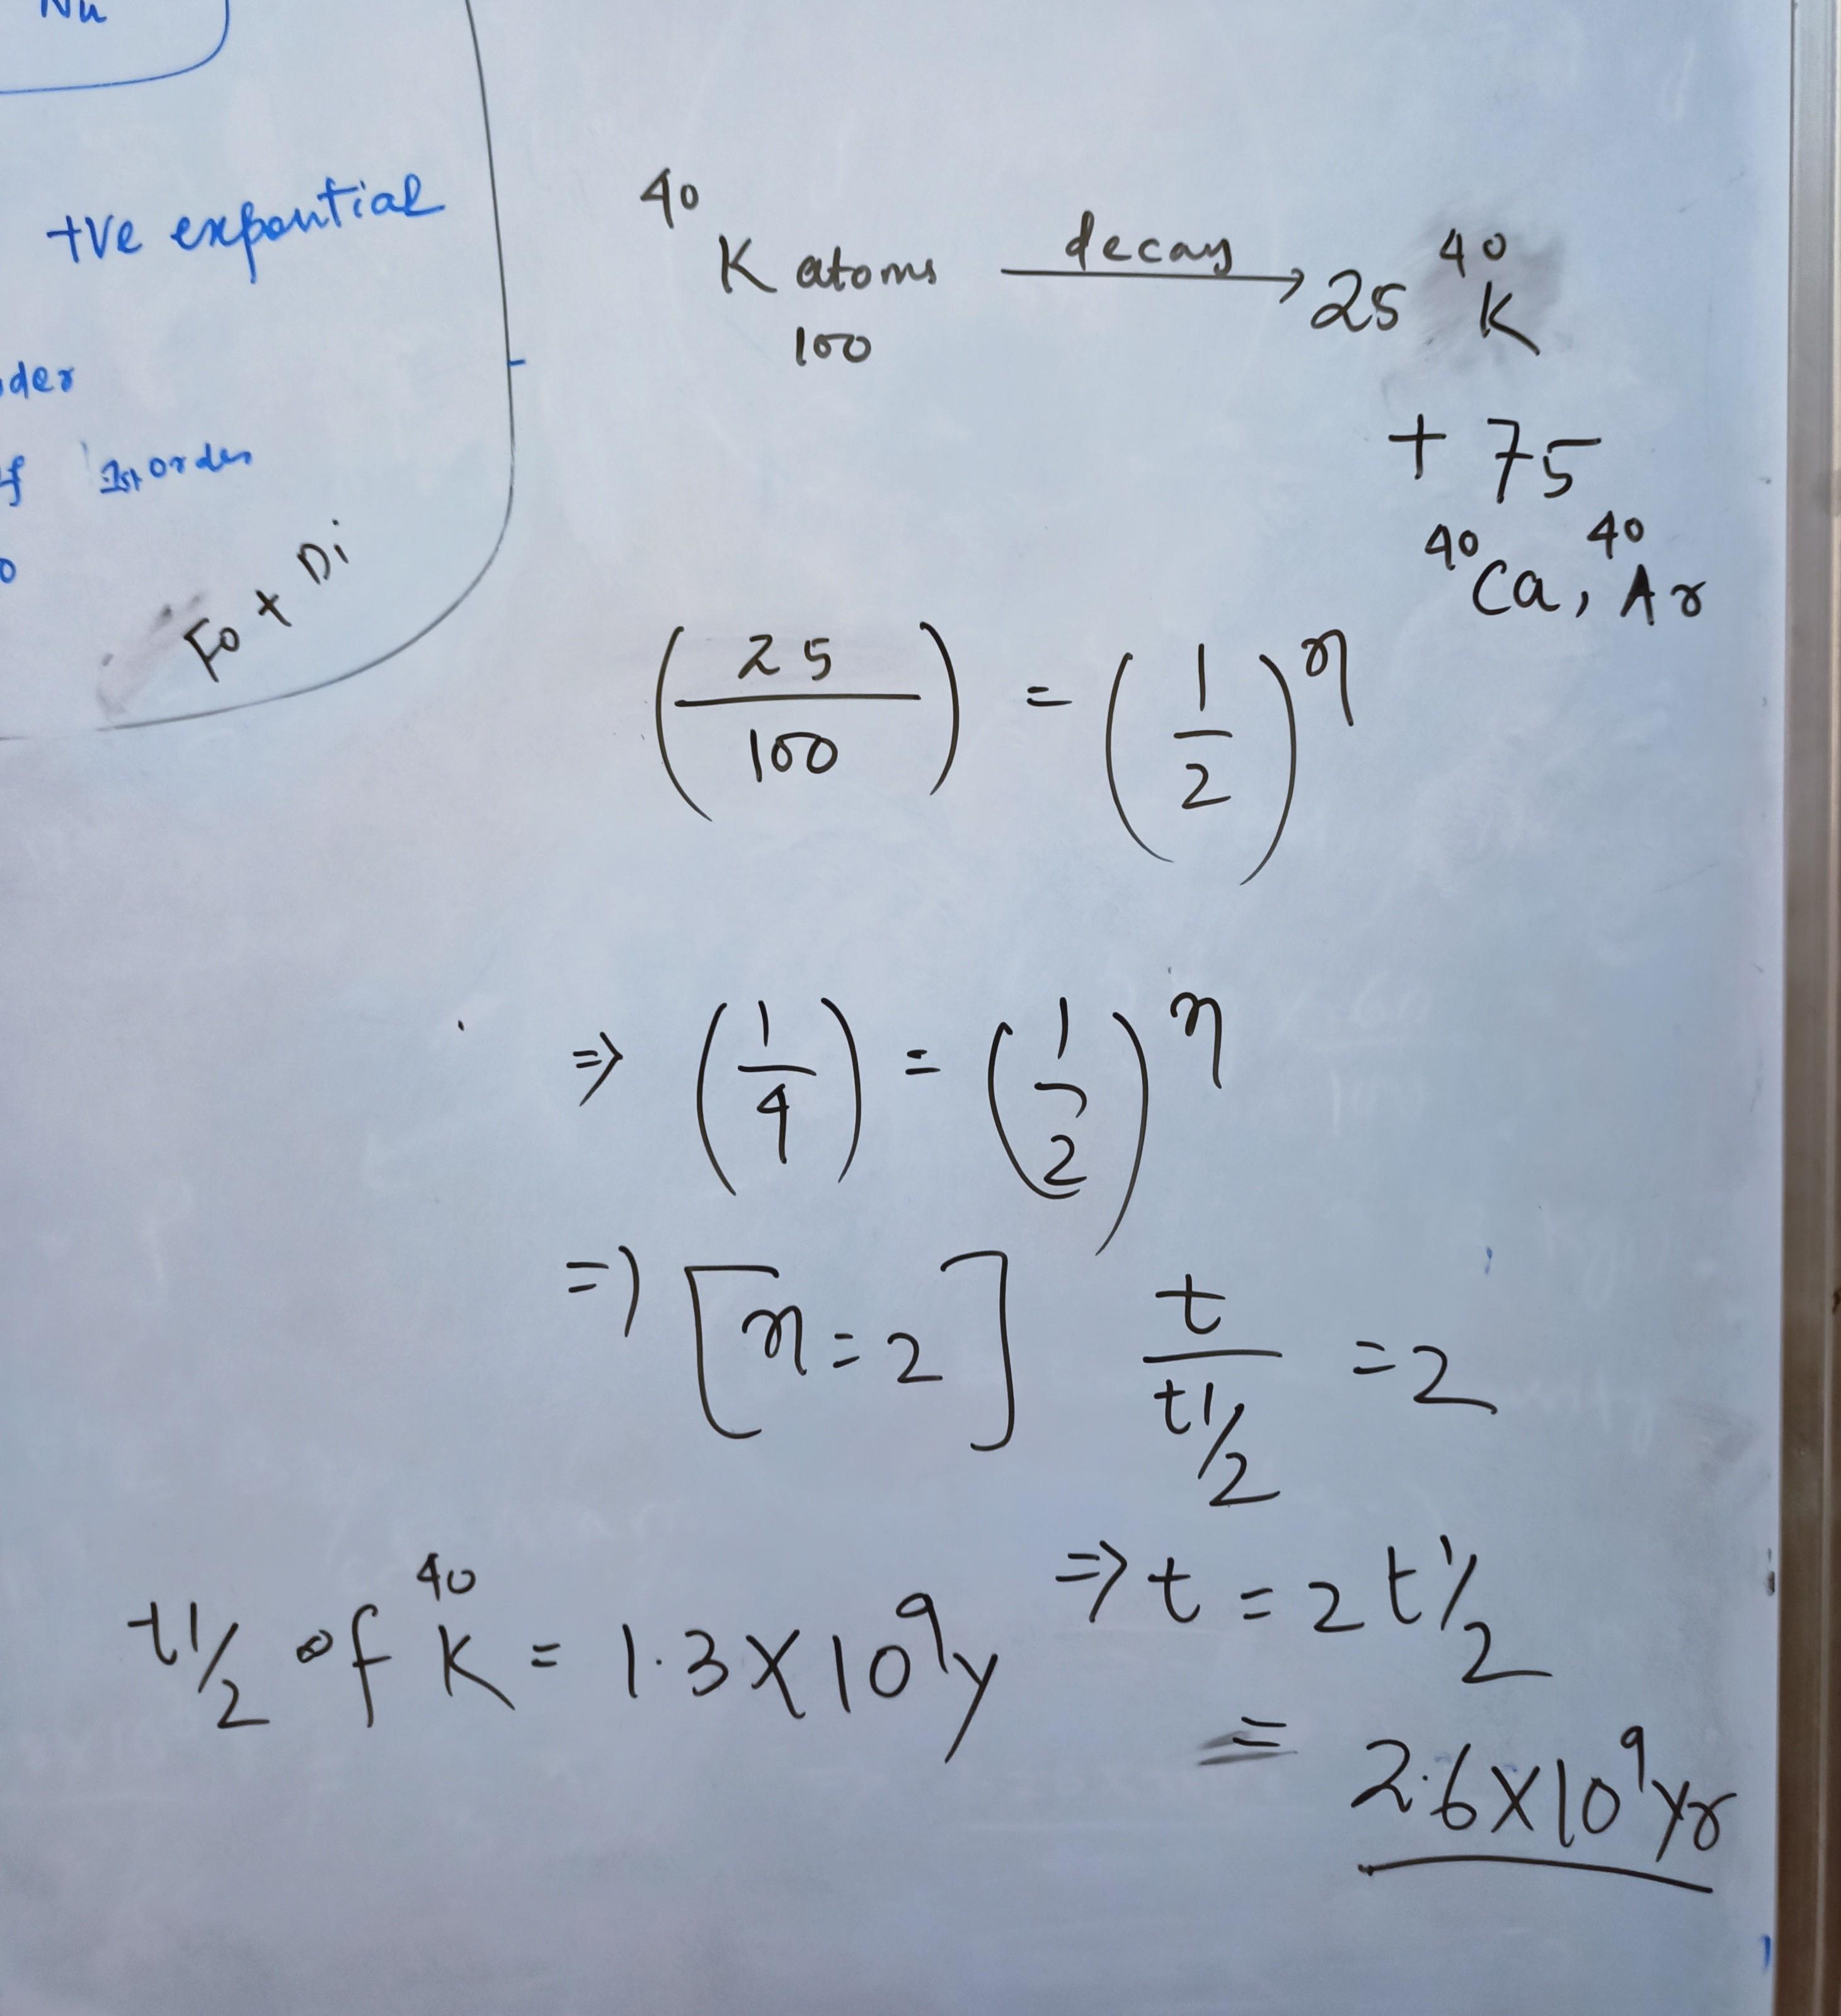 Nu
+ve expontial
der
f 1st order
Fo + Di
40K atoms decay → 25 40K
100
+ 75
40Ca, 40Ar
(25/100) = (1/2)^n
⇒ (1/4) = (1/2)^n
⇒ [n = 2] t/t1/2 = 2
⇒ t = 2 t1/2
t1/2 of 40K = 1.3 X 10^9 y
= 2.6 X 10^9 yr